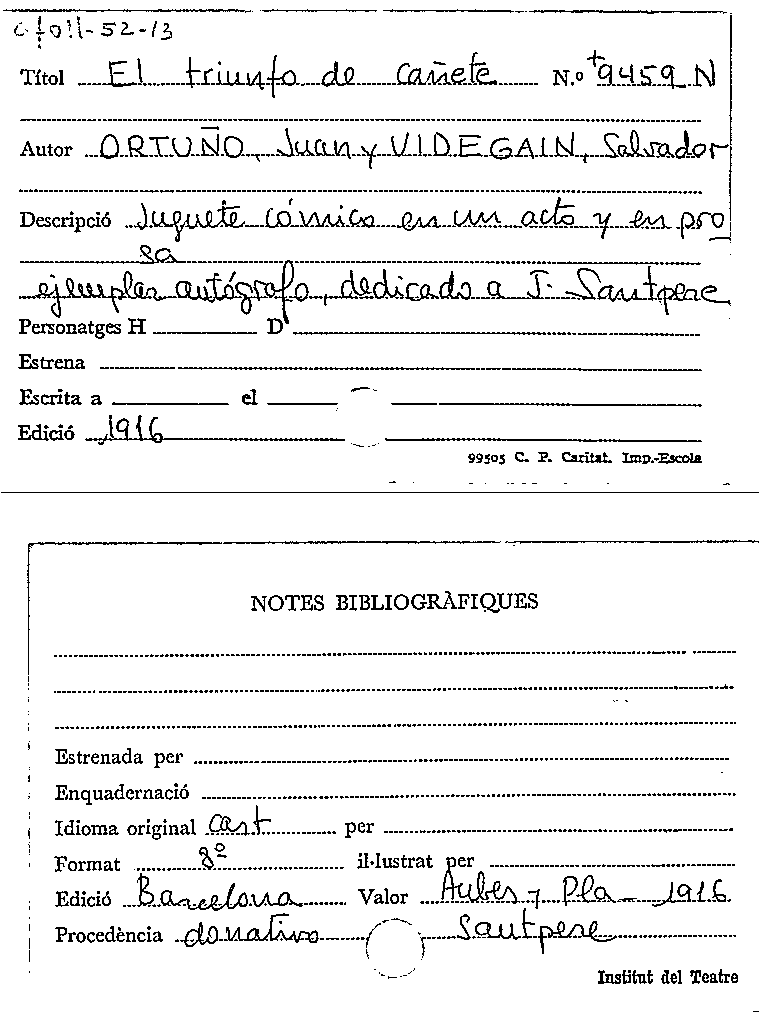 52-13
Títol El triunfo de Cañete N.º +9459 N
Autor ORTUÑO, Juan y VIDEGAIN, Salvador
Descripció Juguete cómico en un acto y en pro
sa
ejemplar autógrafo, dedicado a J. Santpere
Personatges H D
Estrena
Escrita a el
Edició 1916
99505 C. P. Caritat. Imp.-Escola
NOTES BIBLIOGRÀFIQUES
Estrenada per
Enquadernació
Idioma original cast per
Format 8º il·lustrat per
Edició Barcelona Valor Aubes y Pla - 1916
Procedència donativo Santpere
Institut del Teatre